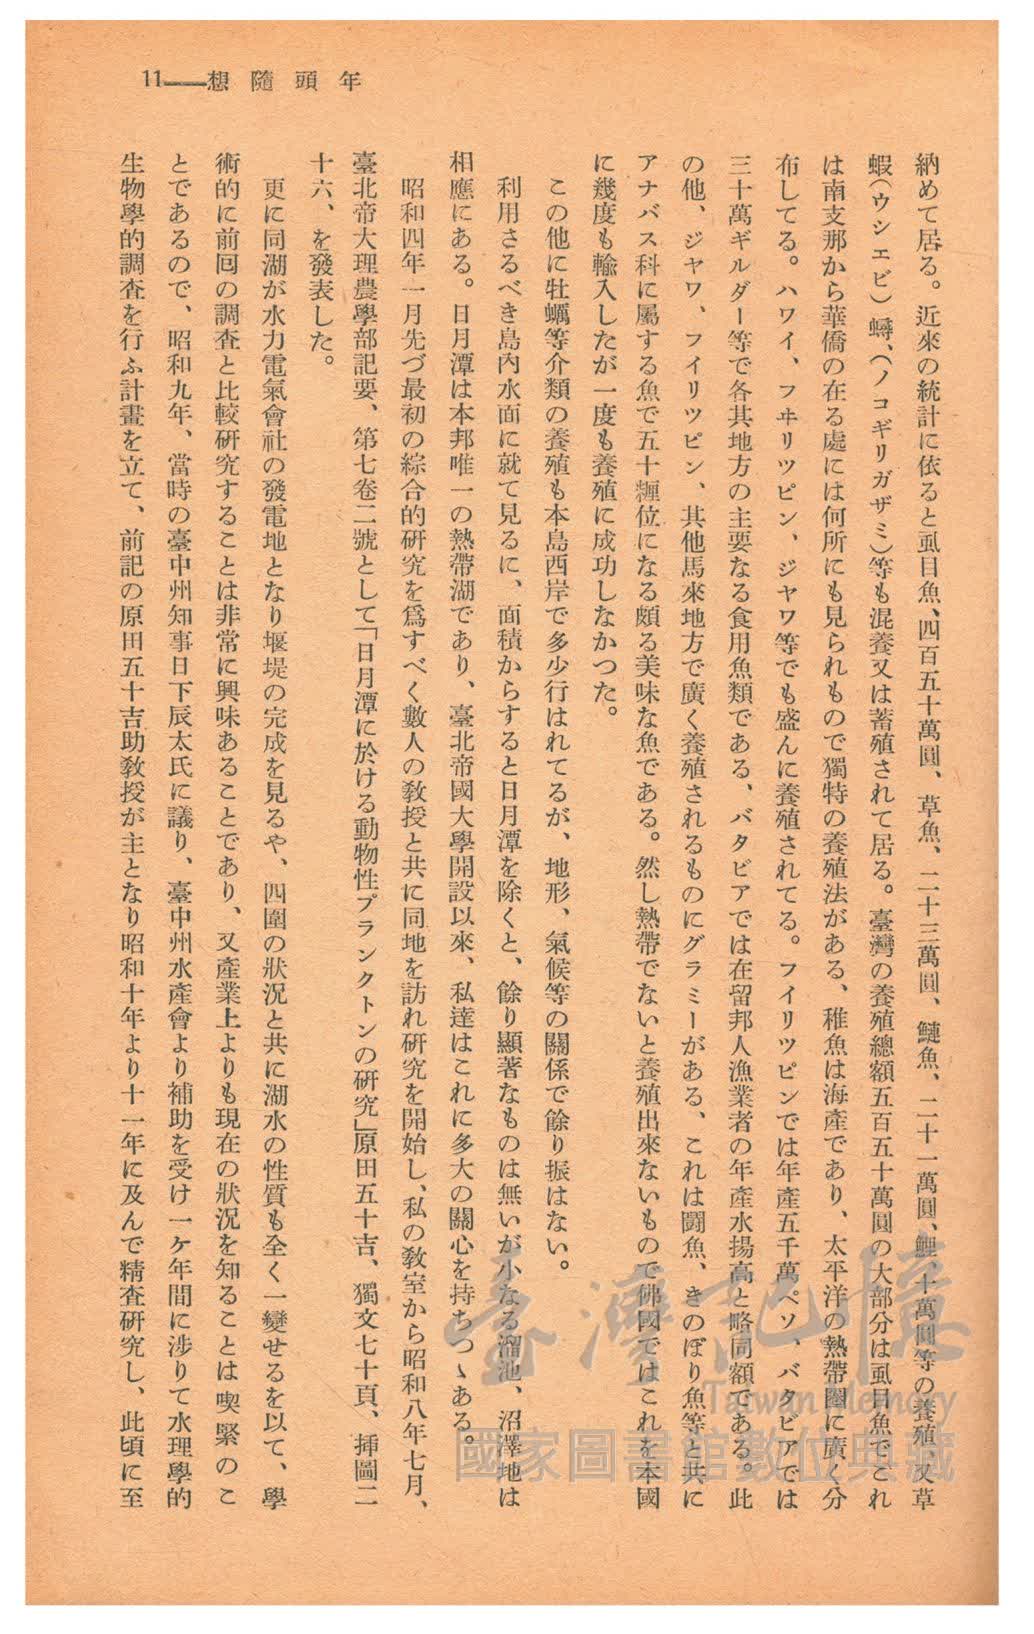 年頭隨想——11
納めて居る。近來の統計に依ると虱目魚、四百五十萬圓、草魚、二十三萬圓、鰱魚、二十一萬圓、鯉十萬圓等の養殖、又草
蝦(ウシエビ)蟳、(ノコギリガザミ)等も混養又は蓄殖されて居る。臺灣の養殖總額五百五十萬圓の大部分は虱目魚でこれ
は南支那から華僑の在る處には何所にも見られもので獨特の養殖法がある、稚魚は海產であり、太平洋の熱帶圈に廣く分
布してる。ハワイ、フヰリツピン、ジヤワ等でも盛んに養殖されてる。フイリツピンでは年產五千萬ペソ、バタビアでは
三十萬ギルダー等で各其地方の主要なる食用魚類である、バタビアでは在留邦人漁業者の年產水揚高と略同額である。此
の他、ジヤワ、フイリツピン、其他馬來地方で廣く養殖されるものにグラミーがある、これは鬪魚、きのぼり魚等と共に
アナバス科に屬する魚で五十糎位になる頗る美味な魚である。然し熱帶でないと養殖出來ないもので佛國ではこれを本國
に幾度も輸入したが一度も養殖に成功しなかつた。
この他に牡蠣等介類の養殖も本島西岸で多少行はれてるが、地形、氣候等の關係で餘り振はない。
利用さるべき島內水面に就て見るに、面積からすると日月潭を除くと、餘り顯著なものは無いが小なる溜池、沼澤地は
相應にある。日月潭は本邦唯一の熱帶湖であり、臺北帝國大學開設以來、私達はこれに多大の關心を持ちつゝある。
昭和四年一月先づ最初の綜合的硏究を爲すべく數人の敎授と共に同地を訪れ硏究を開始し、私の敎室から昭和八年七月、
臺北帝大理農學部記要、第七卷二號として「日月潭に於ける動物性プランクトンの硏究」原田五十吉、獨文七十頁、揷圖二
十六、を發表した。
更に同湖が水力電氣會社の發電地となり堰堤の完成を見るや、四圍の狀況と共に湖水の性質も全く一變せるを以て、學
術的に前回の調査と比較硏究することは非常に興味あることであり、又產業上よりも現在の狀況を知ることは喫緊のこ
とであるので、昭和九年、當時の臺中州知事日下辰太氏に議り、臺中州水產會より補助を受け一ケ年間に涉りて水理學的
生物學的調査を行ふ計畫を立て、前記の原田五十吉助敎授が主となり昭和十年より十一年に及んで精査硏究し、此頃に至
臺灣記憶
Taiwan Memory
國家圖書館數位典藏